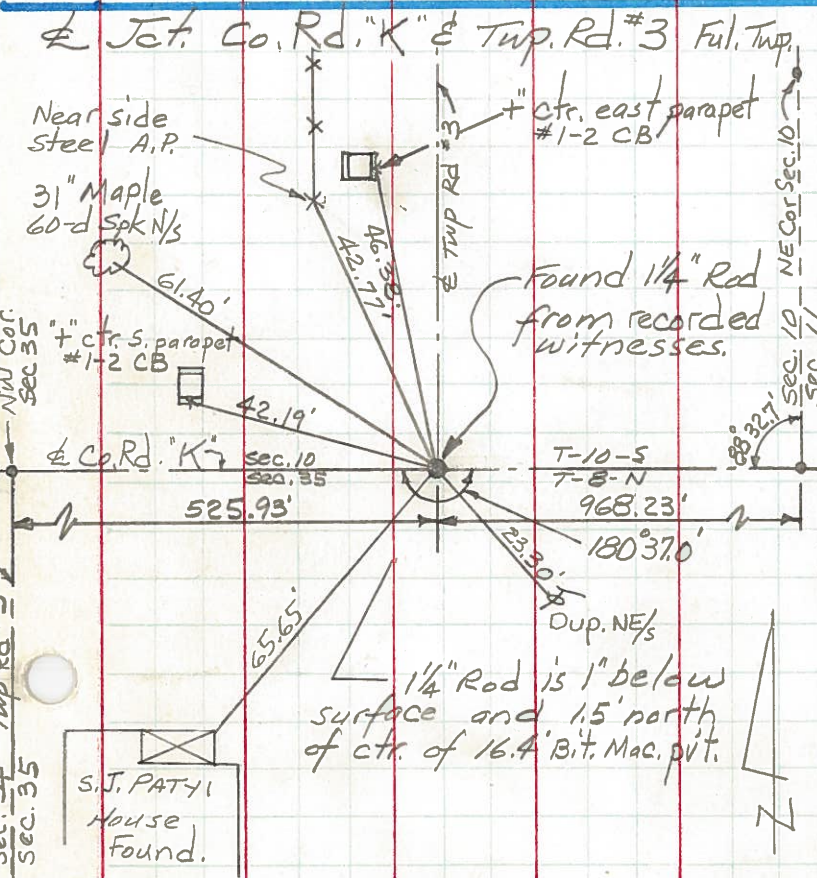 ℄ Jct. Co. Rd. "K" & Twp. Rd. #3 Ful. Twp.
Near side
Steel A.P.
"+" ctr. east parapet
#1-2 CB
31" Maple
60-d Spk N/s
℄ Twp Rd #3
NE Cor Sec. 10
46.38'
42.77'
61.40'
Found 1¼" Rod
from recorded
witnesses.
NW Cor.
Sec 35
"+" ctr. S. parapet
#1-2 CB
42.19'
sec. 10
88°32.7'
℄ Co. Rd. "K"
Sec. 10
Sec. 35
T-10-S
T-8-N
525.93'
968.23'
180°37.0'
23.30'
Dup. NE/s
65.65'
1¼" Rod is 1" below
surface and 1.5' north
of ctr. of 16.4' Bit. Mac. pvt.
S.J. PATYI
House
Found.
Twp Rd
Sec. 35